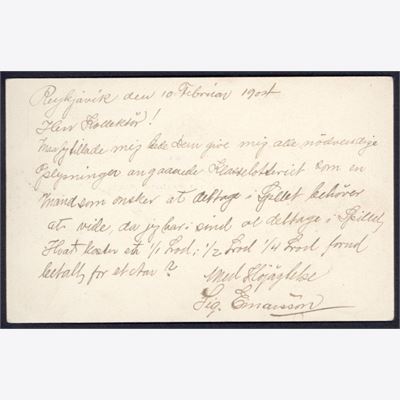 Reykjavik den 10 Februar 1904
Herr Kollektör!
mig bede Dem give mig alle nödvendige
Oplysninger angaaende Klasselotteriet som en
mand som ønsker at deltage i Spillet behöver
at vide, da jeg har i sind at deltage i Spillet,
Hvad koster et 1/1 Lod; 1/2 Lod 1/4 Lod forud
betalt, for et Aar?
med Höjagtelse
Sig. Einarsson